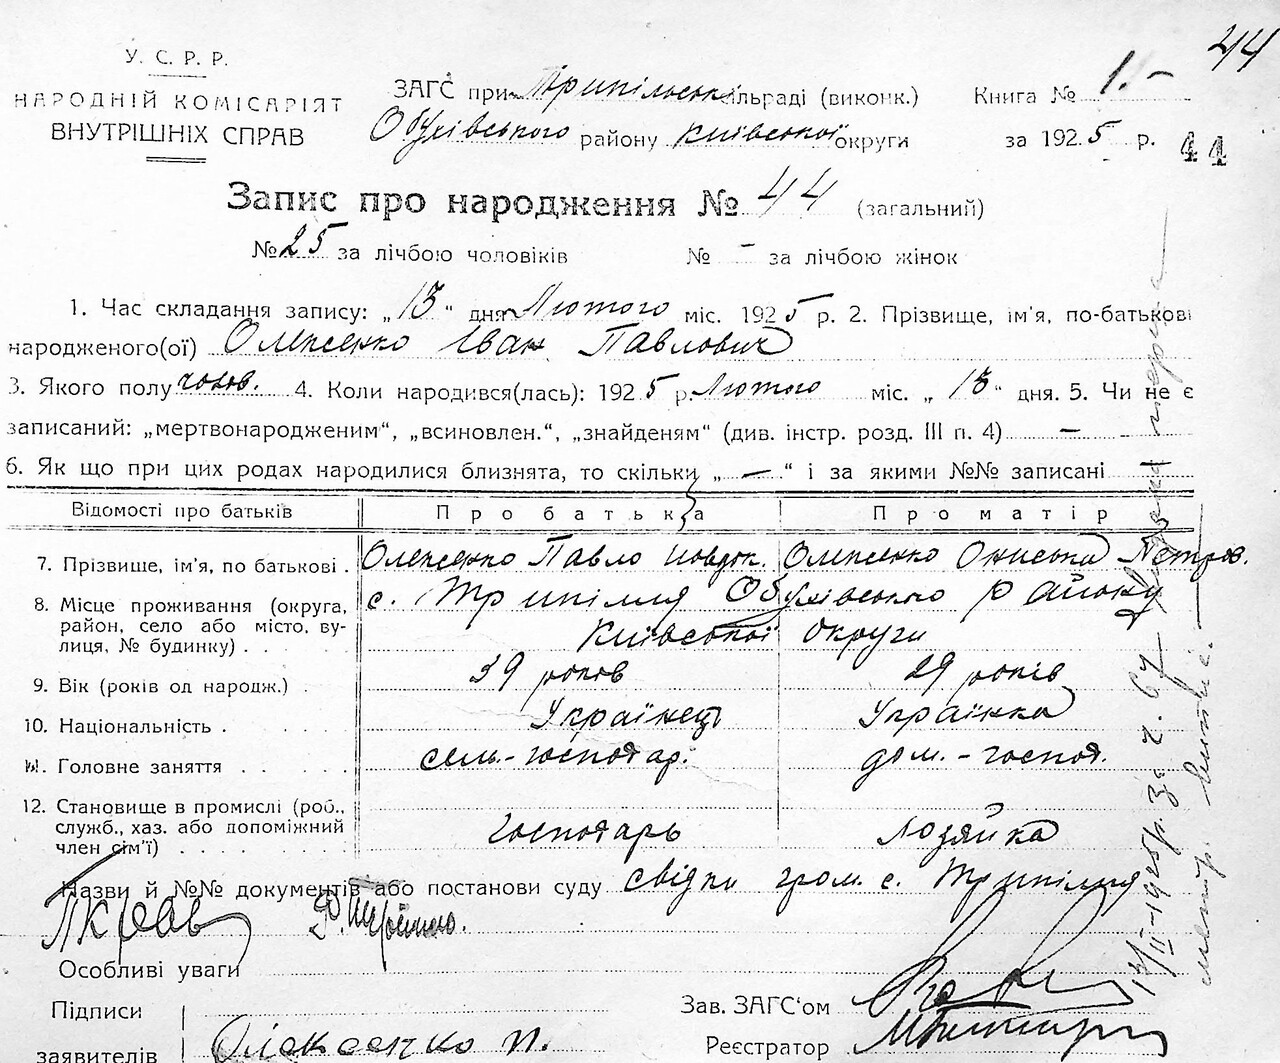 44
У. С. Р. Р.
НАРОДНІЙ КОМІСАРІЯТ
ВНУТРІШНІХ СПРАВ
ЗАГС при Трипільськ сільраді (виконк.)
Обухівського району Київської округи
Книга № 1.-
за 1925 р.
44
Запис про народження № 44 (загальний)
№ 25 за лічбою чоловіків № - за лічбою жінок
1. Час складання запису: „13“ дня Лютого міс. 1925 р. 2. Прізвище, ім'я, по-батькові
народженого(ої) Олексенко Іван Павлович
3. Якого полу чолов. 4. Коли народився(лась): 1925 р. Лютого міс. „13“ дня. 5. Чи не є
записаний: „мертвонародженим“, „всиновлен.“, „знайденям“ (див. інстр. розд. III п. 4) —
6. Як що при цих родах народилися близнята, то скільки „—“ і за якими №№ записані
Відомості про батьків Про батька Про матір
7. Прізвище, ім'я, по батькові . Олексенко Павло Олексенко Ониська Петров.
8. Місце проживання (округа, район, село або місто, вулиця, № будинку) . . с. Трипілля Обухівського району
Київської округи
9. Вік (років од народж.) . 39 років 29 років
10. Національність . Українець Українка
11. Головне заняття . . . . . сель.-господар. дом.-господ.
12. Становище в промислі (роб.,
служб., хаз. або допоміжний
член сім'ї) . . . . . . . господарь хозяйка
Назви й №№ документів або постанови суду свідки гром. с. Трипілля
Особливі уваги
Підписи
заявителів Олексенко П.
Зав. ЗАГС'ом
Реєстратор